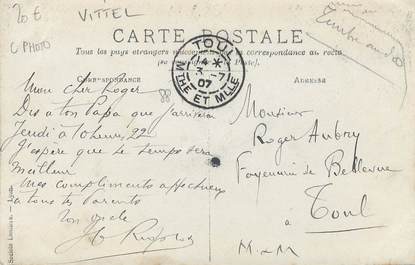 20 €
VITTEL
C PHOTO
CARTE POSTALE
Tous les pays étrangers correspondance au recto
Poste).
CORRESPONDANCE
ADRESSE
TOUL
4 *
3 -7
07
MTHE ET MLLE
Timbre
Mon cher Roger
Dis à ton Papa que j'arriverai
Jeudi à 10 heures 22
J'espère que le temps sera
meilleur
Mes compliments affectueux
à tous tes Parents
Ton oncle
Monsieur
Roger Aubry
Fayencerie de Bellevue
à
Toul
M-&-M
Société Lorraine